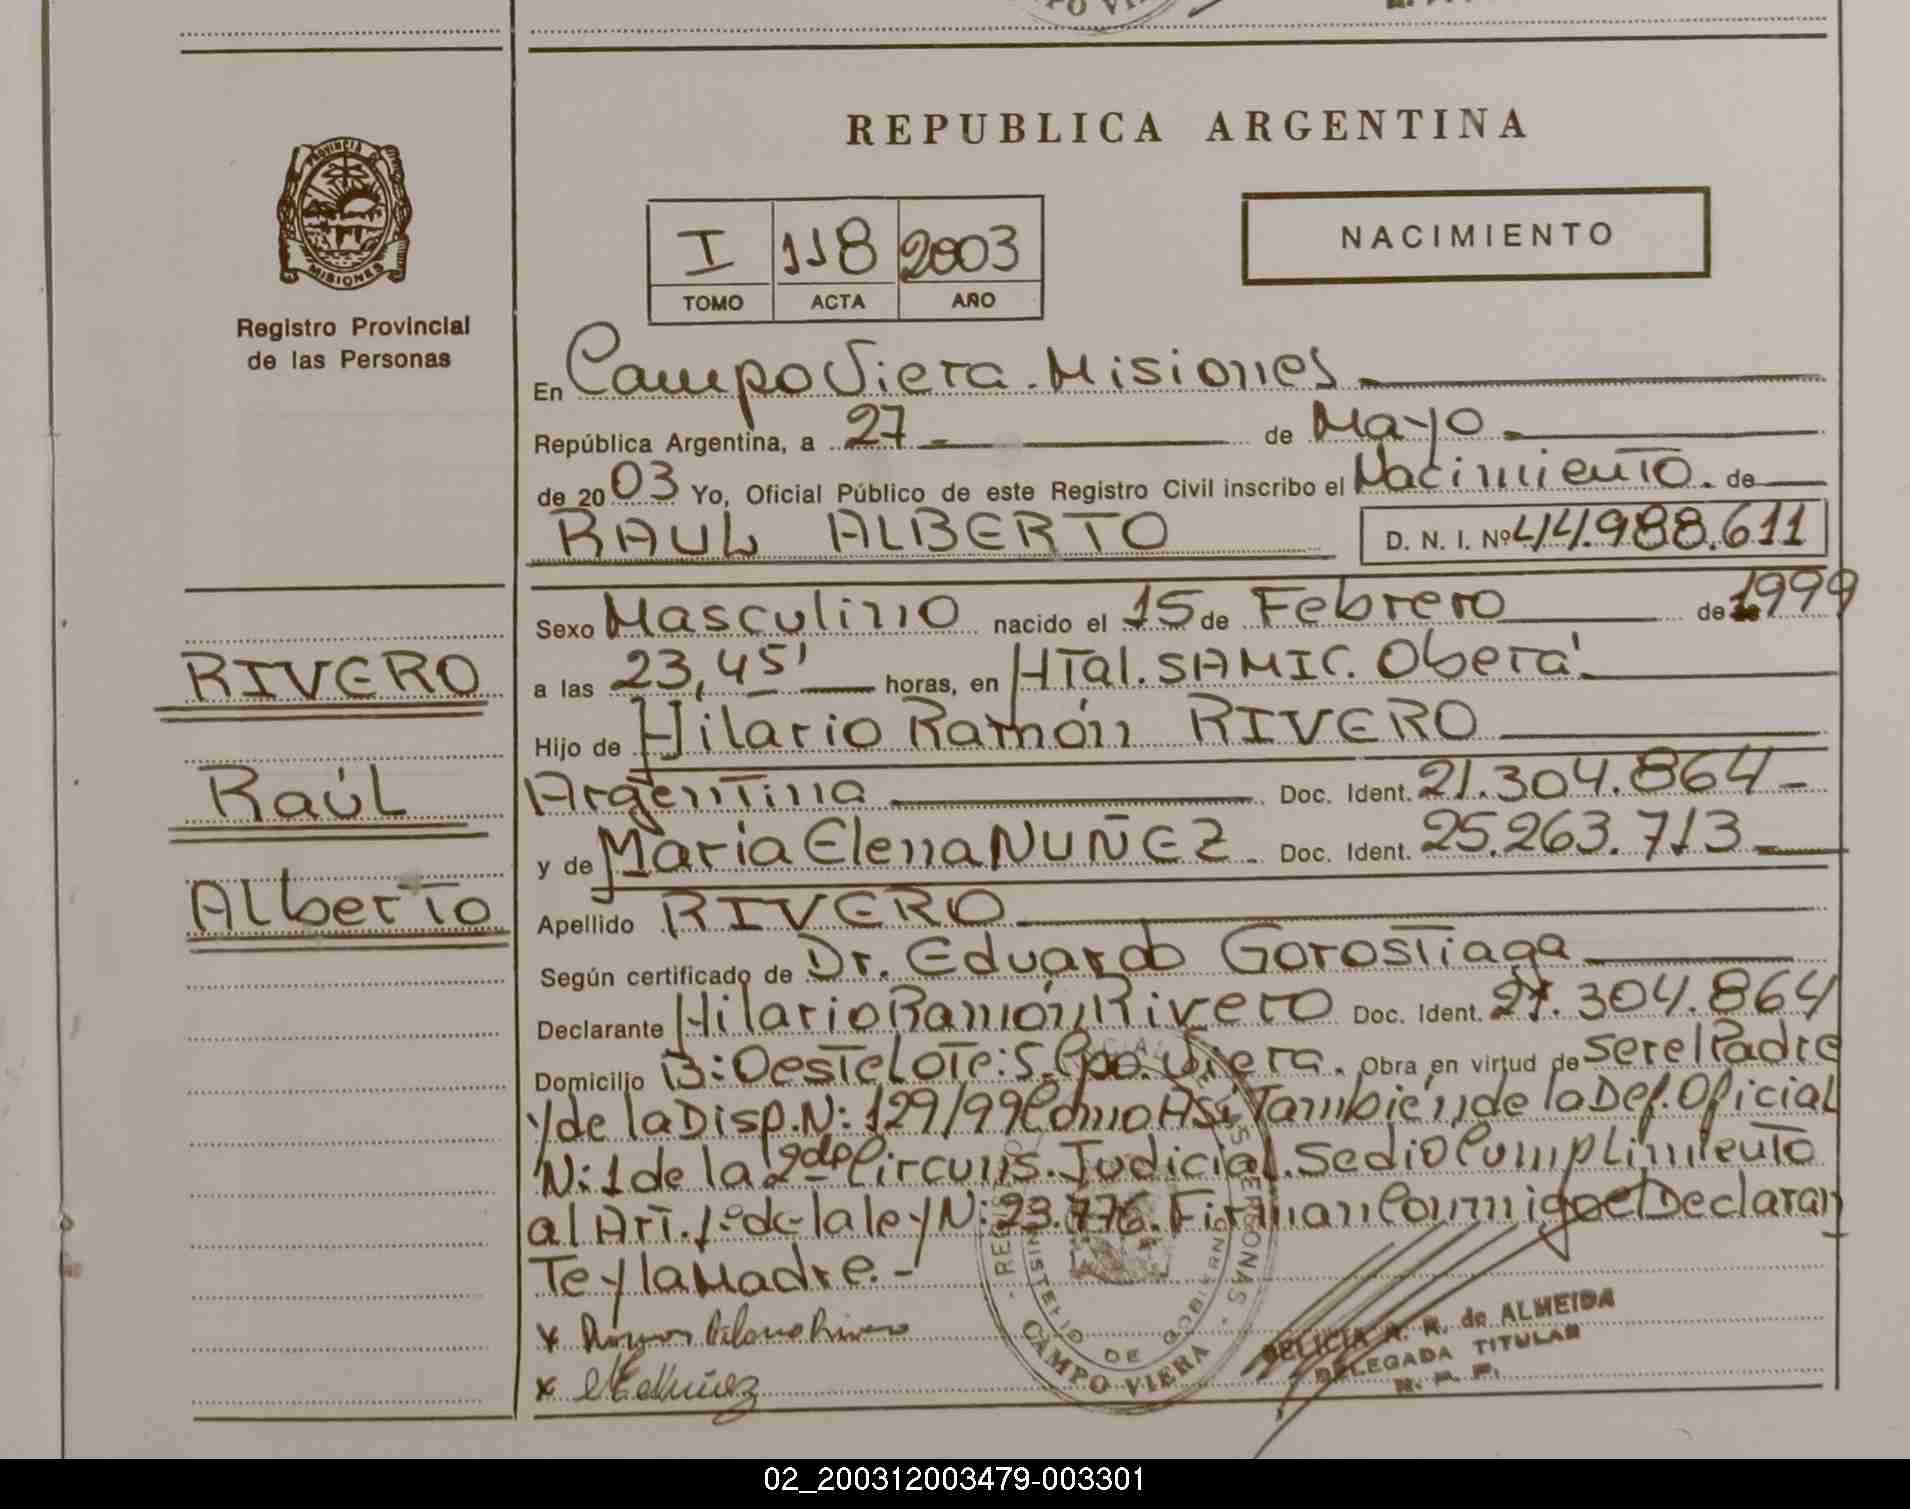 REPUBLICA ARGENTINA
PROVINCIA DE
MISIONES
Registro Provincial
de las Personas
I 118 2003
TOMO ACTA AÑO
NACIMIENTO
En Campo Viera. Misiones
República Argentina, a 27 de Mayo
de 2003 Yo, Oficial Público de este Registro Civil inscribo el Nacimiento. de
RAUL ALBERTO D. N. I. Nº 44.988.611
Sexo Masculino nacido el 15 de Febrero de 1999
a las 23,45' horas, en HTal. SAMIC. Oberá
Hijo de Hilario Ramón RIVERO
Argentina Doc. Ident. 21.304.864
y de María Elena NUÑEZ. Doc. Ident. 25.263.713
Apellido RIVERO
Según certificado de Dr. Eduardo Gorostiaga
Declarante Hilario Ramón Rivero Doc. Ident. 21.304.864
Domicilio B: Oeste Lote: 5. Cpo. Viera. Obra en virtud de ser el Padre
y de la Disp. N: 129/99 Como Así También, de la Def. Oficial
N: 1 de la 2da Circuns. Judicial. Se dio Cumplimiento
al Art. 1º de la ley N: 23.776. Firman Conmigo el Declaran
Te y la Madre.-
RIVERO
Raúl
Alberto
CAMPO VIERA
DELICIA R. R. de ALMEIDA
DELEGADA TITULAR
R. P. P.
02_200312003479-003301